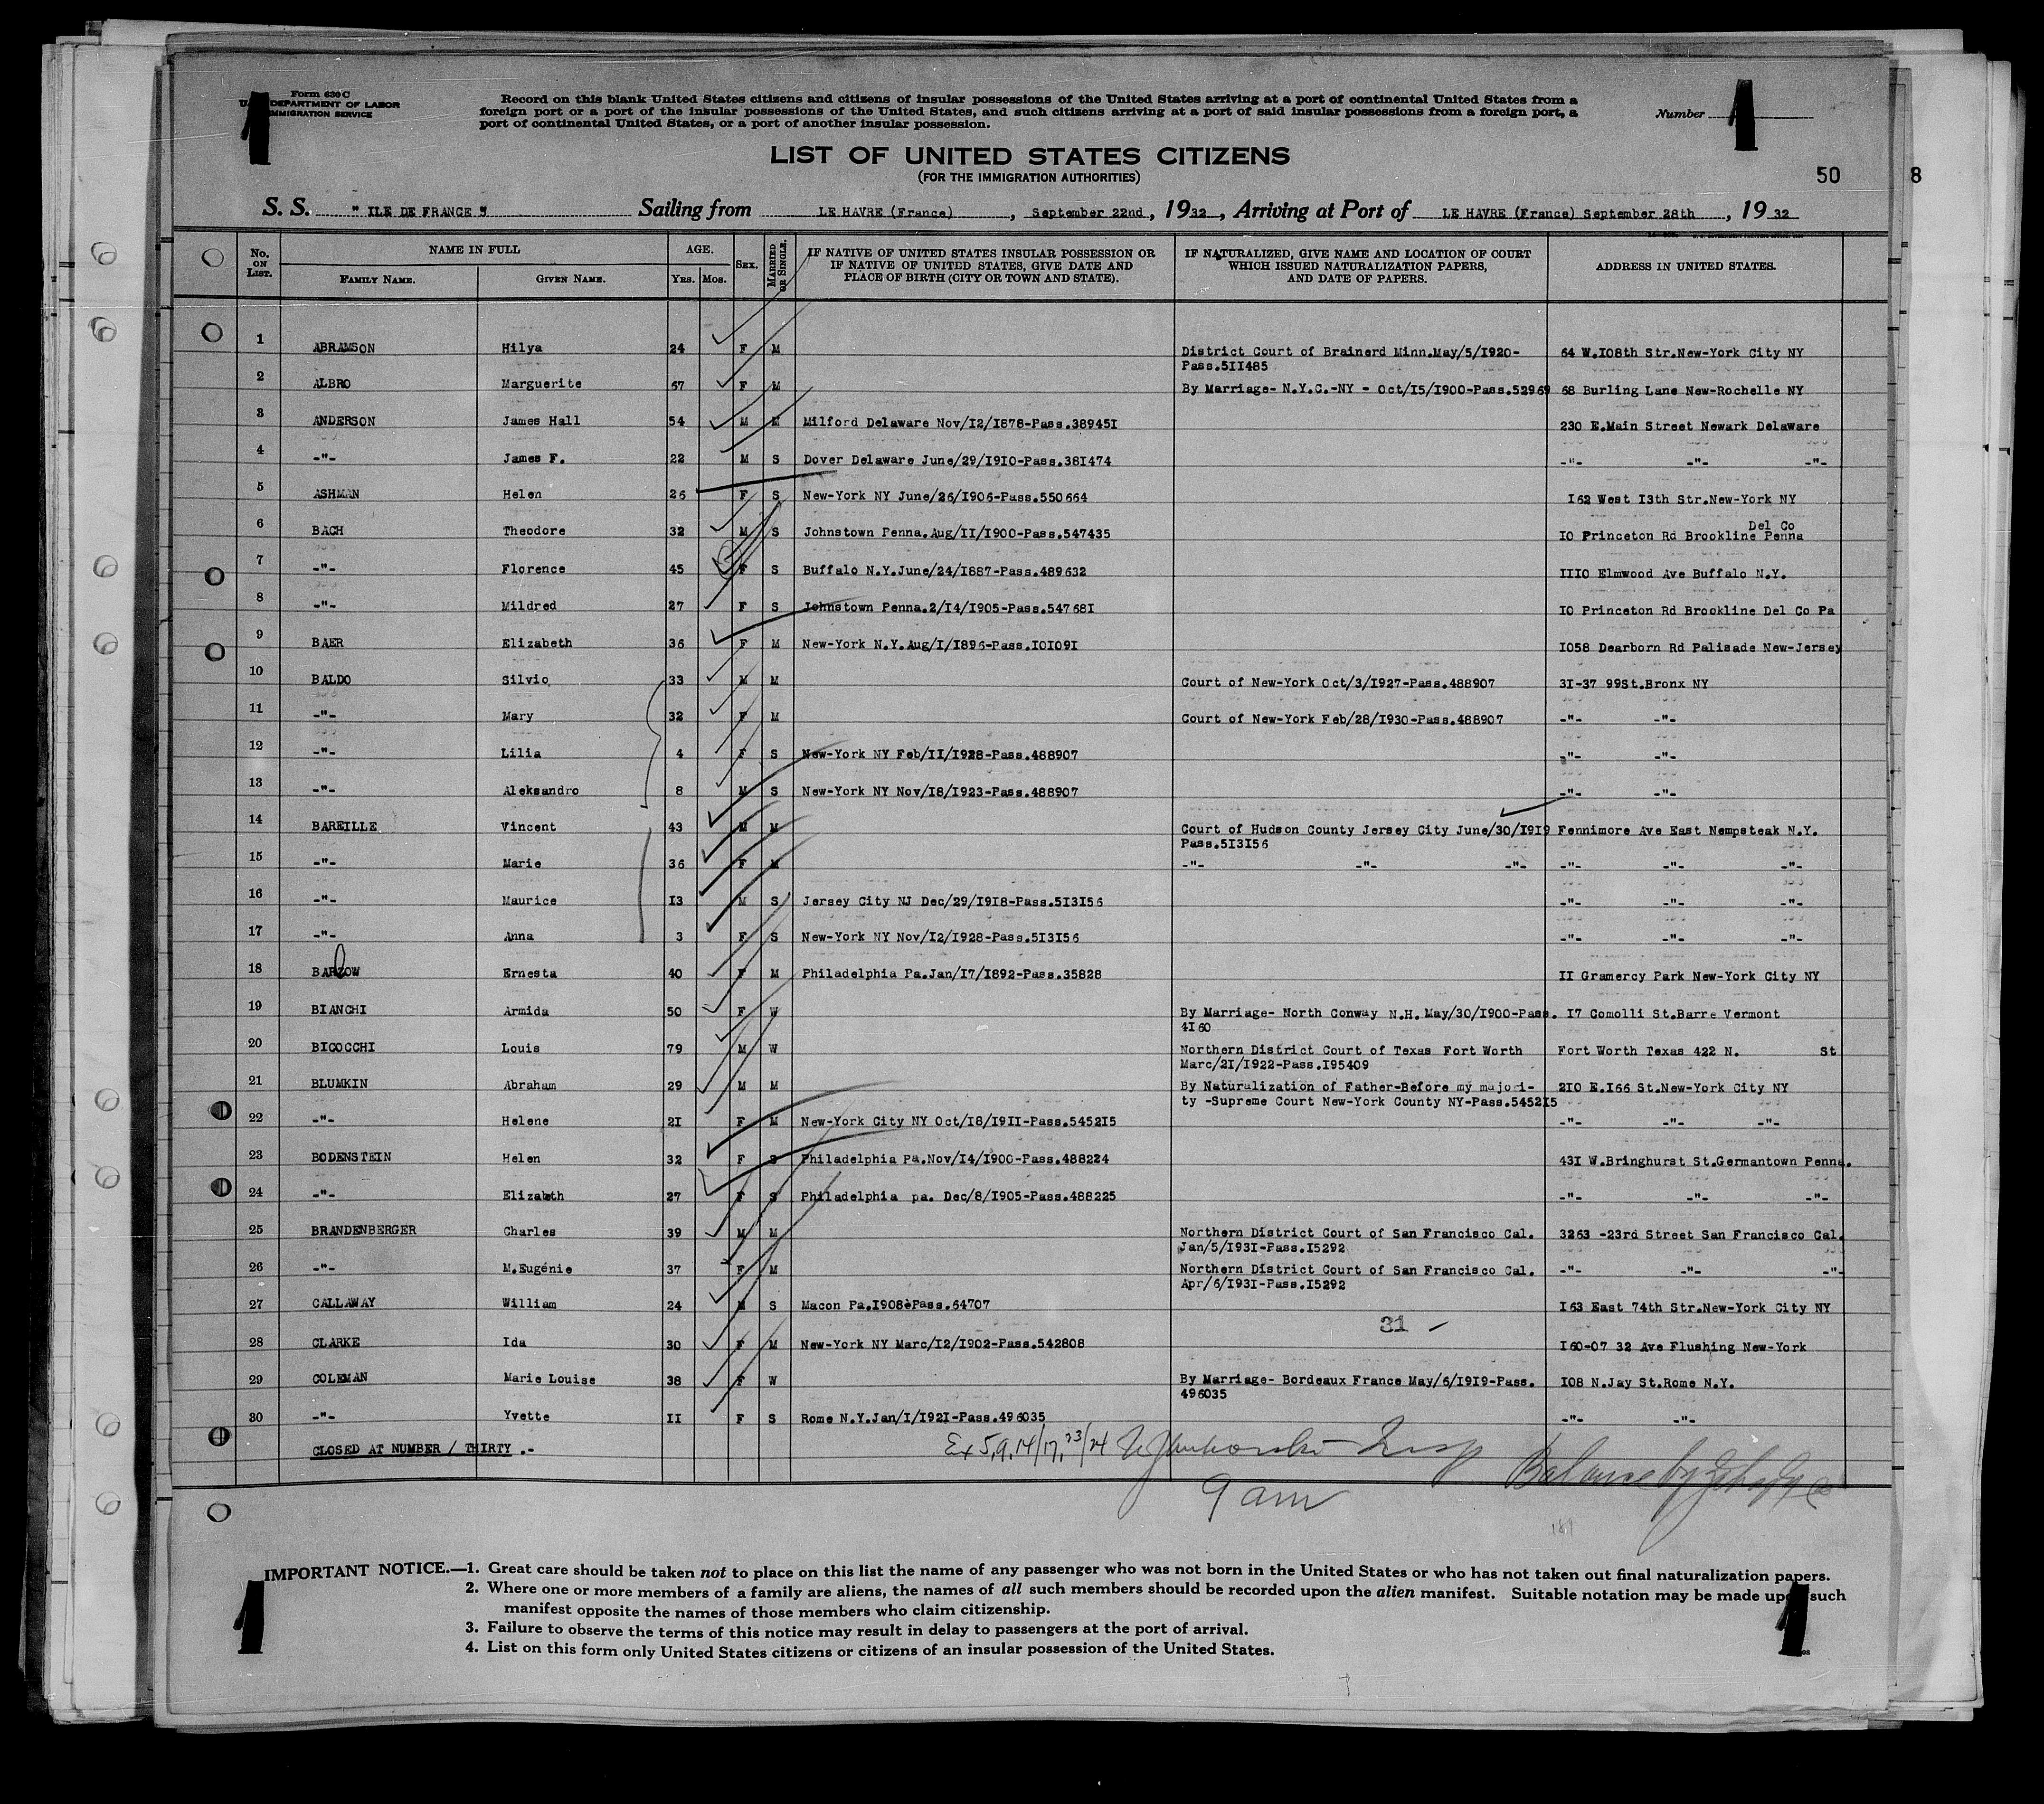 Form 630 C
U. S. DEPARTMENT OF LABOR
IMMIGRATION SERVICE
Record on this blank United States citizens and citizens of insular possessions of the United States arriving at a port of continental United States from a
foreign port or a port of the insular possessions of the United States, and such citizens arriving at a port of said insular possessions from a foreign port, a
port of continental United States, or a port of another insular possession.
Number 1
1
LIST OF UNITED STATES CITIZENS
(FOR THE IMMIGRATION AUTHORITIES)
50 8
S. S. "ILE DE FRANCE" Sailing from LE HAVRE (France), September 22nd, 1932, Arriving at Port of LE HAVRE (France) September 28th, 1932
No. ON LIST. NAME IN FULL FAMILY NAME. GIVEN NAME. AGE. YRS. MOS. SEX. MARRIED OR SINGLE. IF NATIVE OF UNITED STATES INSULAR POSSESSION OR IF NATIVE OF UNITED STATES, GIVE DATE AND PLACE OF BIRTH (CITY OR TOWN AND STATE). IF NATURALIZED, GIVE NAME AND LOCATION OF COURT WHICH ISSUED NATURALIZATION PAPERS, AND DATE OF PAPERS. ADDRESS IN UNITED STATES.
1 ABRAMSON Hilya 24 F M District Court of Brainerd Minn.May/5/1920- 64 W.108th Str.New-York City NY
Pass.511485
2 ALBRO Marguerite 67 F M By Marriage- N.Y.C.-NY - Oct/15/1900-Pass.52969 68 Burling Lane New-Rochelle NY
3 ANDERSON James Hall 54 M M Milford Delaware Nov/12/1878-Pass.389451 230 E.Main Street Newark Delaware
4 -"- James F. 22 M S Dover Delaware June/29/1910-Pass.381474 -"- -"- -"-
5 ASHMAN Helen 26 F S New-York NY June/26/1906-Pass.550664 162 West 13th Str.New-York NY
6 BACH Theodore 32 M S Johnstown Penna.Aug/11/1900-Pass.547435 10 Princeton Rd Brookline Del Co Penna
7 -"- Florence 45 F S Buffalo N.Y.June/24/1887-Pass.489632 1110 Elmwood Ave Buffalo N.Y.
8 -"- Mildred 27 F S Johnstown Penna.2/14/1905-Pass.547681 10 Princeton Rd Brookline Del Co Pa
9 BAER Elizabeth 36 F M New-York N.Y.Aug/1/1896-Pass.101091 1058 Dearborn Rd Palisade New-Jersey
10 BALDO Silvio 33 M M Court of New-York Oct/3/1927-Pass.488907 31-37 99St.Bronx NY
11 -"- Mary 32 F M Court of New-York Feb/28/1930-Pass.488907 -"- -"-
12 -"- Lilia 4 F S New-York NY Feb/11/1928-Pass.488907 -"- -"-
13 -"- Aleksandro 8 M S New-York NY Nov/18/1923-Pass.488907 -"- -"-
14 BAREILLE Vincent 43 M M Court of Hudson County Jersey City June/30/1919 Fennimore Ave East Nempsteak N.Y.
Pass.513156
15 -"- Marie 36 F M -"- -"- -"- -"- -"- -"-
16 -"- Maurice 13 M S Jersey City NJ Dec/29/1918-Pass.513156 -"- -"- -"-
17 -"- Anna 3 F S New-York NY Nov/12/1928-Pass.513156 -"- -"- -"-
18 BARLOW Ernesta 40 F M Philadelphia Pa.Jan/17/1892-Pass.35828 11 Gramercy Park New-York City NY
19 BIANCHI Armida 50 F W By Marriage- North Conway N.H. May/30/1900-Pass. 17 Comolli St.Barre Vermont
4160
20 BICOCCHI Louis 79 M W Northern District Court of Texas Fort Worth Fort Worth Texas 422 N. St
Marc/21/1922-Pass.195409
21 BLUMKIN Abraham 29 M M By Naturalization of Father-Before my majori- 210 E.166 St.New-York City NY
ty -Supreme Court New-York County NY-Pass.545215
22 -"- Helene 21 F M New-York City NY Oct/18/1911-Pass.545215 -"- -"- -"-
23 BODENSTEIN Helen 32 F S Philadelphia Pa.Nov/14/1900-Pass.488224 431 W.Bringhurst St.Germantown Penna.
24 -"- Elizabth 27 F S Philadelphia pa. Dec/8/1905-Pass.488225 -"- -"- -"-
25 BRANDENBERGER Charles 39 M M Northern District Court of San Francisco Cal. 3263 -23rd Street San Francisco Cal.
Jan/5/1931-Pass.15292
26 -"- M.Eugénie 37 F M Northern District Court of San Francisco Cal. -"- -"- -"-
Apr/6/1931-Pass.15292
27 CALLAWAY William 24 M S Macon Pa.1908èPass.64707 163 East 74th Str.New-York City NY
31 -
28 CLARKE Ida 30 F M New-York NY Marc/12/1902-Pass.542808 160-07 32 Ave Flushing New-York
29 COLEMAN Marie Louise 38 F W By Marriage- Bordeaux France May/6/1919-Pass. 108 N.Jay St.Rome N.Y.
496035
30 -"- Yvette 11 F S Rome N.Y.Jan/1/1921-Pass.496035 -"- -"-
CLOSED AT NUMBER / THIRTY .-
Ex 5,9,14/17,23/24 Insp
Balance by
9 am
IMPORTANT NOTICE.—1. Great care should be taken not to place on this list the name of any passenger who was not born in the United States or who has not taken out final naturalization papers.
2. Where one or more members of a family are aliens, the names of all such members should be recorded upon the alien manifest. Suitable notation may be made upon such
manifest opposite the names of those members who claim citizenship.
3. Failure to observe the terms of this notice may result in delay to passengers at the port of arrival.
4. List on this form only United States citizens or citizens of an insular possession of the United States.
1 1